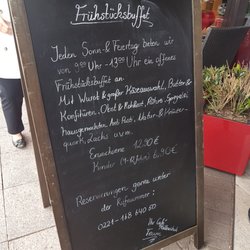 Frühstücksbuffet
Jeden Sonn- & Feiertag bieten wir
von 9:00 Uhr - 13:00 Uhr ein offenes
Frühstücksbuffet an.
Mit Wurst & großer Käseauswahl, Butter &
Konfitüren, Obst & Rohkost, Rührei, Spiegelei
hausgemachten Anti Pasti, Natur- & Kräuter-
quark, Lachs uvm.
Erwachsene 12,90 €
Kinder (4-12 Jahre) 6,90 €
Reservierungen gerne unter
der Rufnummer:
0221-168 640 50
Ihr Café
Team